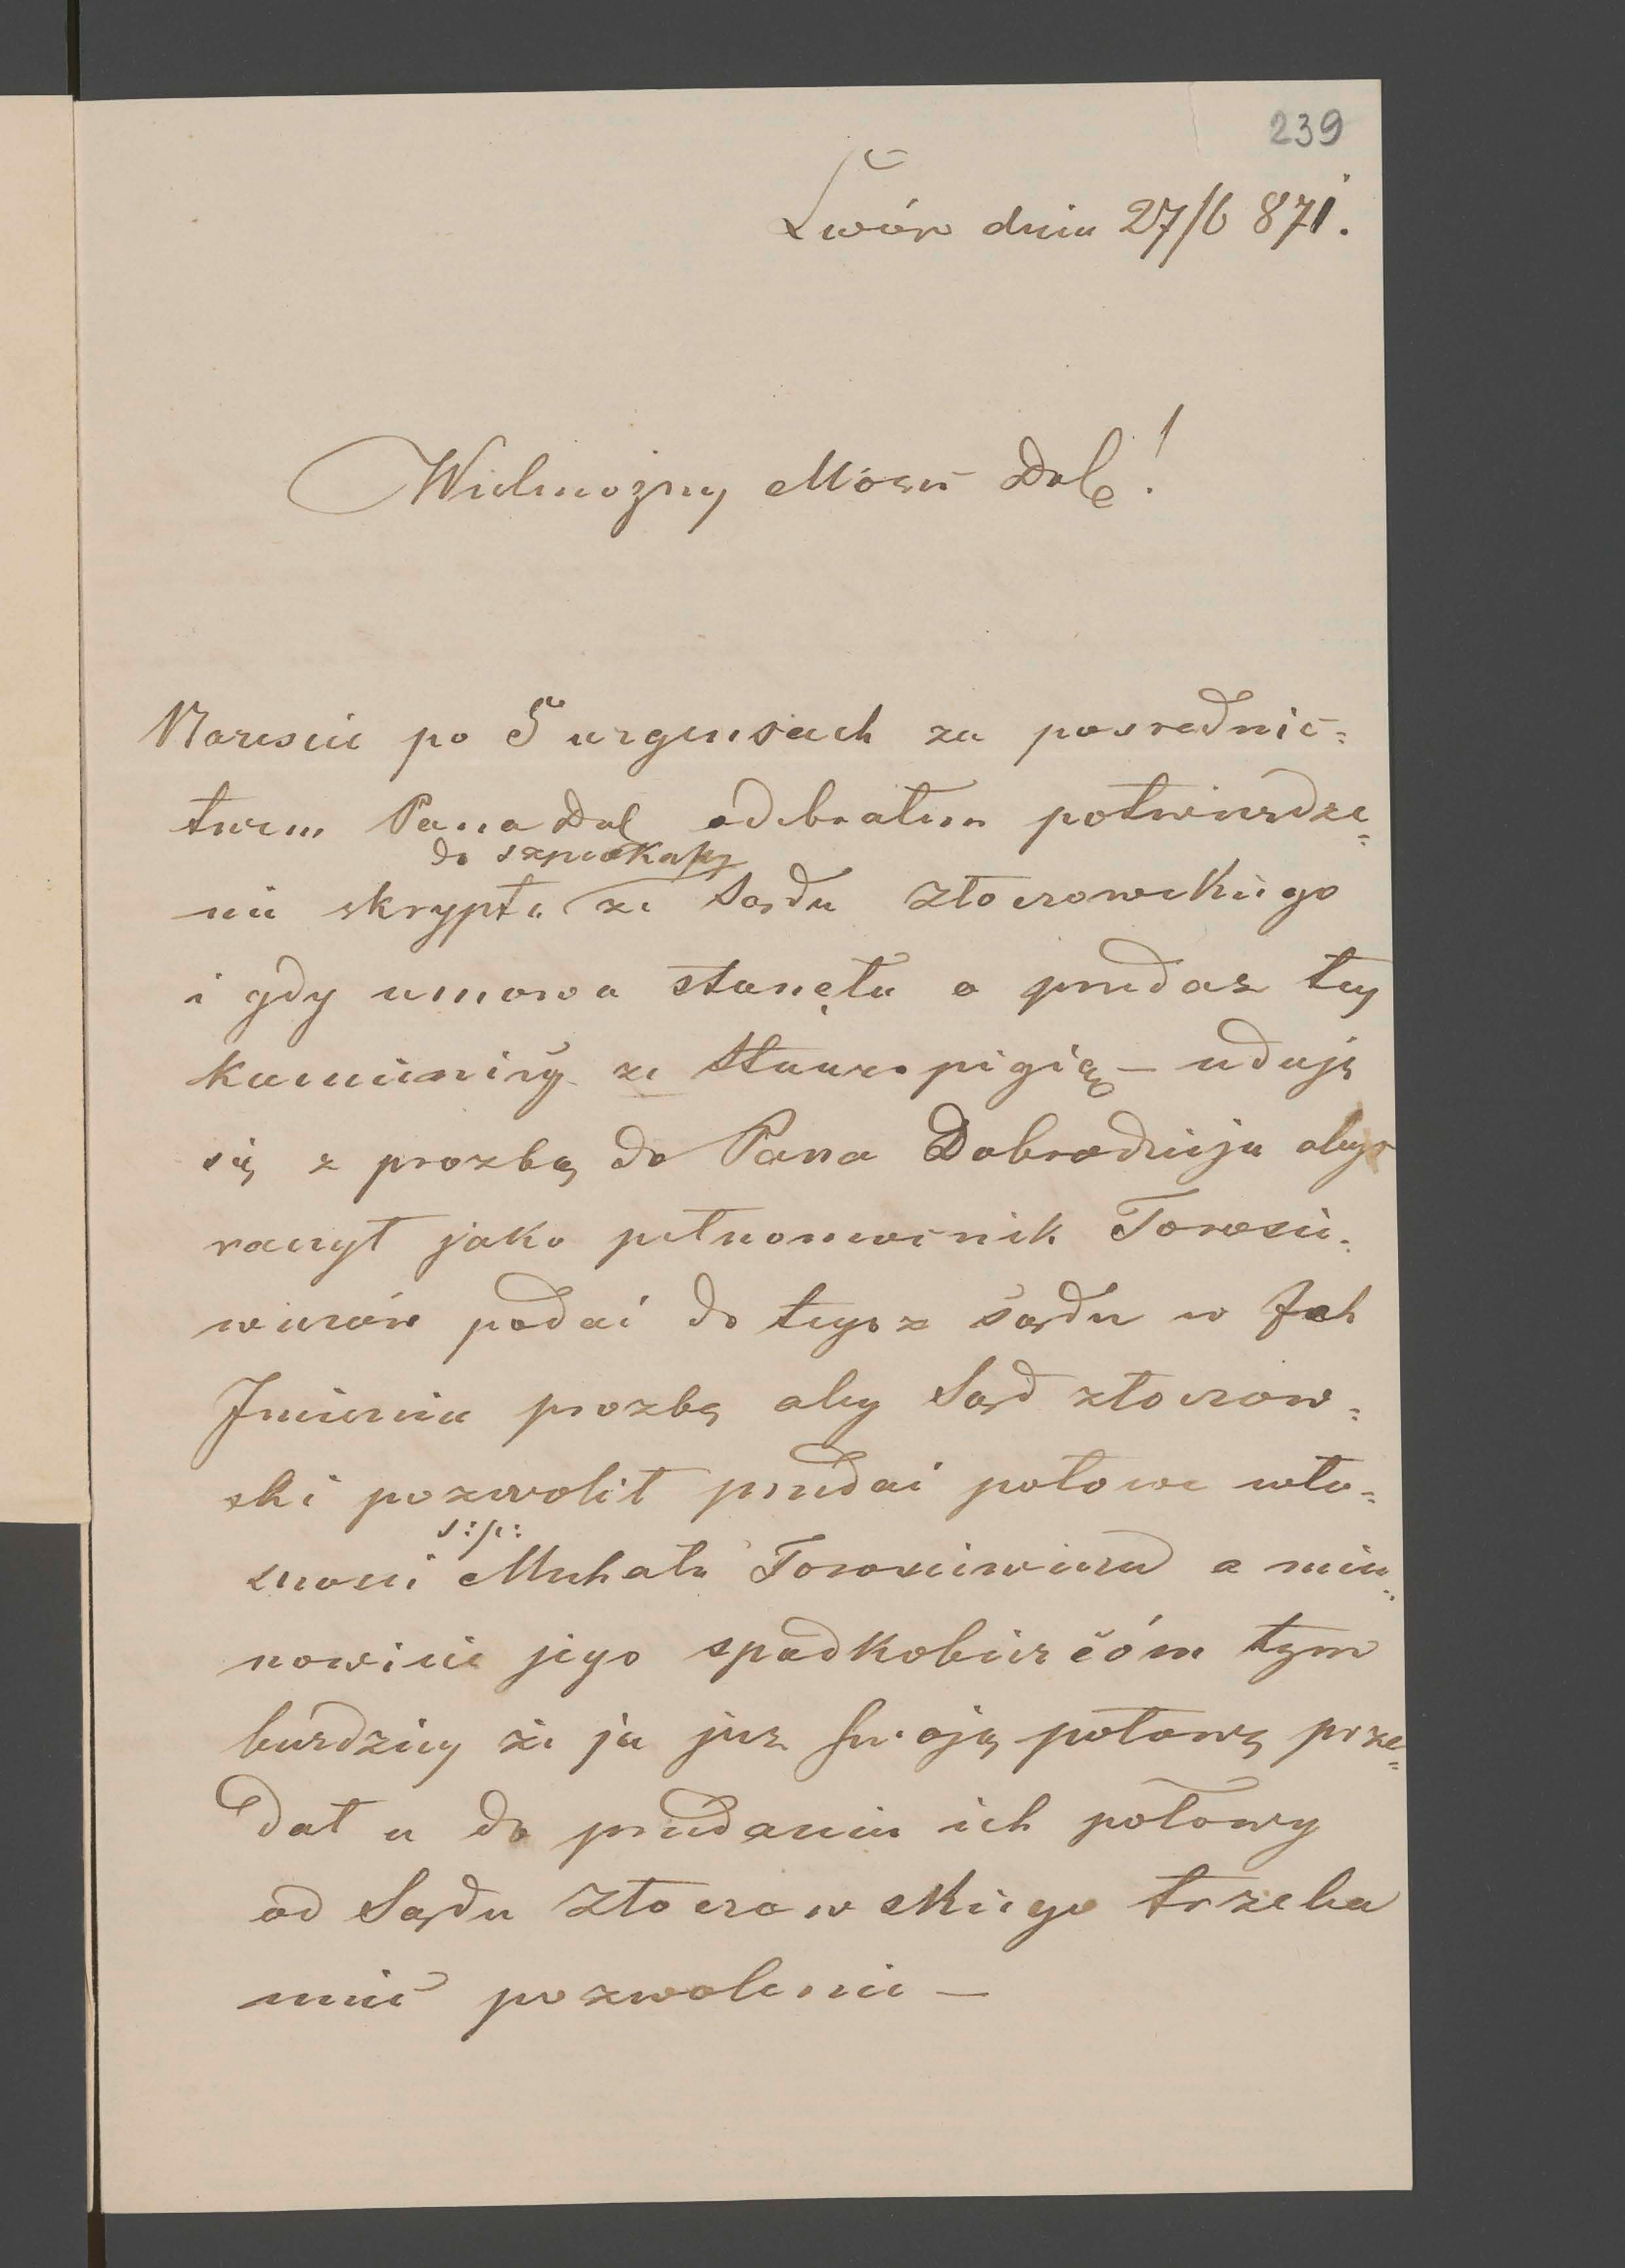 239
Lwów dnia 27/6 871.
Wielmożny Mości Dob!
Narescie po 5 urgensach za posrednic=
twem Pana Dob odebrałem potwierdze=
do szpadkapy
nie skryptu ze Sądu Złoczowskiego
i gdy umowa stanęła o przedaz tey
kamienicy ze Stauropigią — udaję
się z prozbą do Pana Dobrodzieja abyś
raczył jako pełnomocnik Torosie=
wiczów podać do tegoz sądu w Ich
Imieniu prozbę aby Sąd złoczow=
ski pozwolił przedać połowe wła=
ś: p:
snosci Michała Torosiewicza a mia=
nowicie jego spadkobierćóm tym
bardziey że ja juz swoję połowę prze=
dał a do przedania ich połowy
od Sądu Złoczowskiego trzeba
mieć pozwolenie —